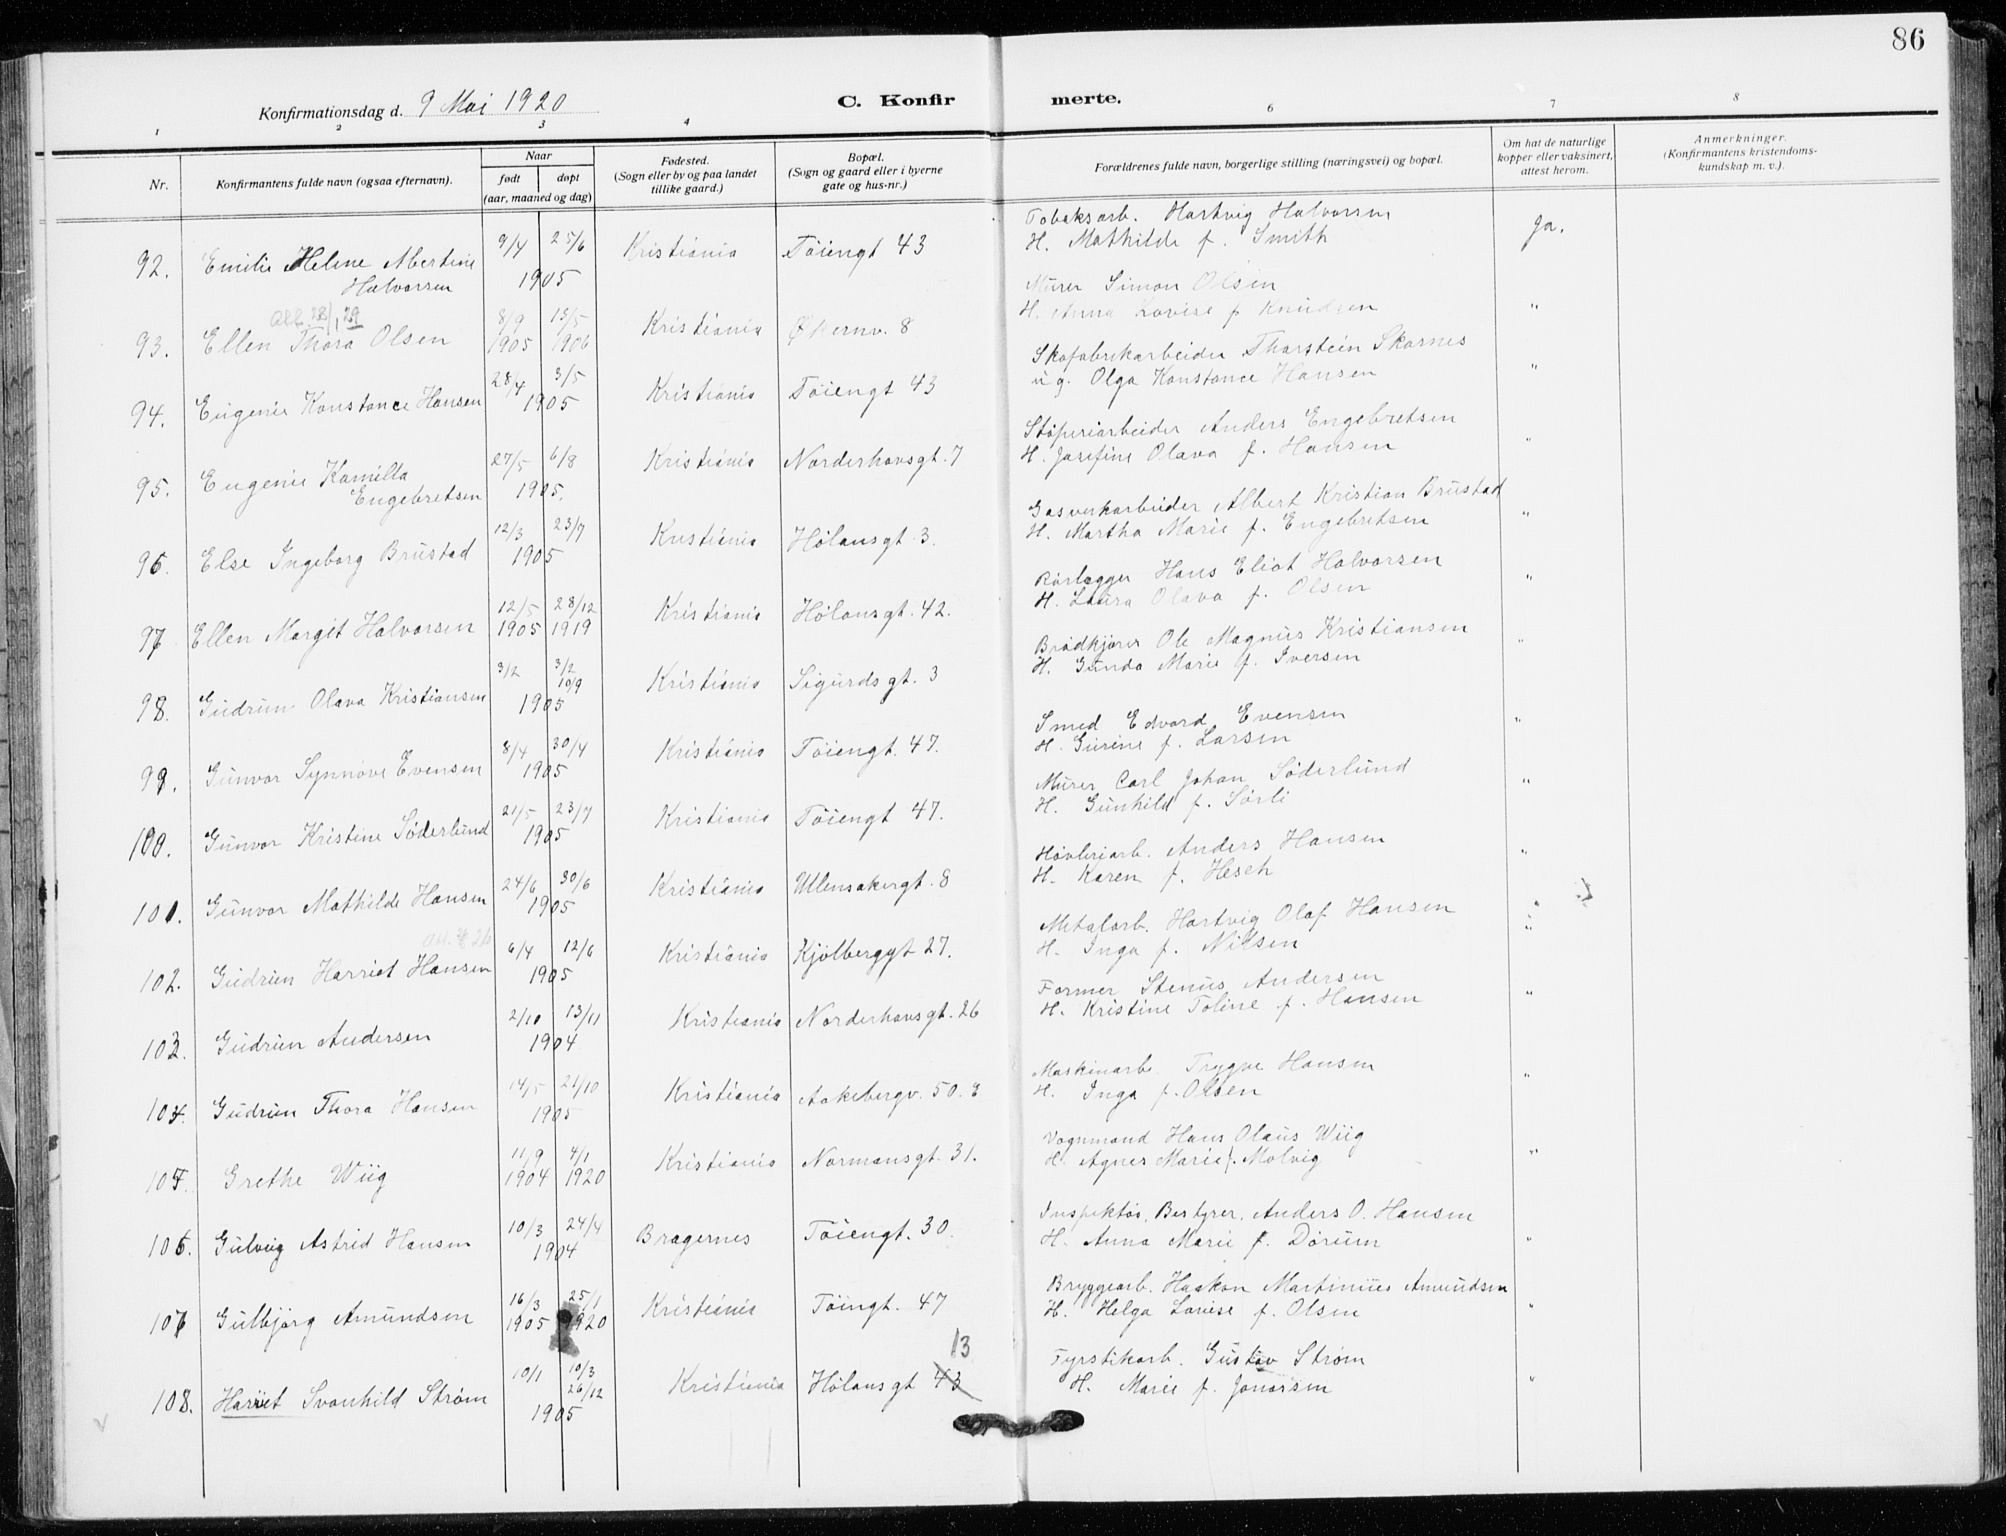 86
Konfirmationsdag d. 9 Mai 1920
C. Konfirmerte.
1 2 3 4 6 7 8
Nr.
Konfirmantens fulde navn (ogsaa efternavn).
Naar
født døpt
(aar, maaned og dag)
Fødested.
(Sogn eller by og paa landet
tillike gaard.)
Bopæl.
(Sogn og gaard eller i byerne
gate og hus-nr.)
Forældrenes fulde navn, borgerlige stilling (næringsvei) og bopæl.
Om hat de naturlige
kopper eller vaksinert,
attest herom.
Anmerkninger.
(Konfirmantens kristendoms-
kundskap m. v.).
92. Emilie Helene Albertine 9/4 25/6 Kristiania Töiengt 43 Tobaksarb. Hartvig Halvorsen Ja.
Halvorsen 1905 H. Mathilde f. Smith
Att. 28/1 29
93. Ellen Thora Olsen 8/9 1905 13/5 1906 Kristiania Økernv. 8 Murer Simon Olsen "
H. Anna Lovise f Knudsen
94. Eugenie Konstance Hansen 28/4 3/5 1905 Kristiania Töiengt 43 Skofabrikarbeider Thorstein Skarnes "
ug. Olga Konstance Hansen
95. Eugenie Kamilla 27/5 6/8 Kristiania Norderhovsgt. 7 Støperiarbeider Anders Engebretsen "
Engebretsen 1905. H. Josefine Olava f. Hansen
96. Else Ingeborg Brustad 12/3 23/7 1905 Kristiania Hølansgt. 3. Gasverkarbeider Albert Kristian Brustad "
H. Martha Marie f. Engebretsen
97 Ellen Margit Halvorsen 12/5 1905 28/12 1919 Kristiania Hølansgt. 42. Rørlægger Hans Eliot Halvorsen "
H. Laura Olava f. Olsen
98. Gudrun Olava Kristiansen 3/2 3/2 10/9 1905 Kristiania Sigurdsgt. 3 Brødkjører Ole Magnus Kristiansen "
H. Gunda Marie f. Iversen
99. Gunvor Synnöve Evensen 8/4 30/4 1905 Kristiania Töiengt. 47. Smed Edvard Evensen "
H. Gurine f. Larsen
100. Gunvor Kristine Söderlund 21/5 23/7 1905 Kristiania Töiengt 47. Murer Carl Johan Söderlund "
H. Gunhild f. Sörli
101. Gunvor Mathilde Hansen 24/6 30/6 1905 Kristiania Ullensakergt. 8 Høvleriarb. Anders Hansen "
H. Karen f. Hesch
102. Gudrun Harriet Hansen 6/4 12/6 1905 Kristiania Kjölberggt 27. Metalarb. Hartvig Olaf Hansen "
H. Inga f. Nilsen
103. Gudrun Andersen 2/10 13/11 1904 Kristiania Norderhovsgt. 26 Former Stenius Andersen "
H. Kristine Toline f. Hansen
104. Gudrun Thora Hansen 14/5 21/10 1905 Kristiania Aakebergv. 50. Maskinarb. Trygve Hansen "
H. Inga f. Olsen
105. Grethe Wiig 11/9 1904 4/1 1920 Kristiania Normansgt. 31. Vognmand Hans Olaus Wiig "
H. Agnes Marie f. Molvig
106. Gulvig Astrid Hansen 10/3 24/4 1904 Bragernes Töiengt. 30. Inspektör, Bestyrer, Anders O. Hansen "
H. Anna Marie f. Dörum
107 Gulbjörg Amundsen 16/3 1905 25/1 1920 Kristiania Töiengt. 47 Bryggearb. Haakon Martinius Amundsen "
H. Helga Lovise f. Olsen
13
108. Harriet Svanhild Ström 10/1 10/3 26/12 1905 Kristiania Hølansgt 43 Fyrstikarb. Gustav Ström "
H. Marie f. Jonassen